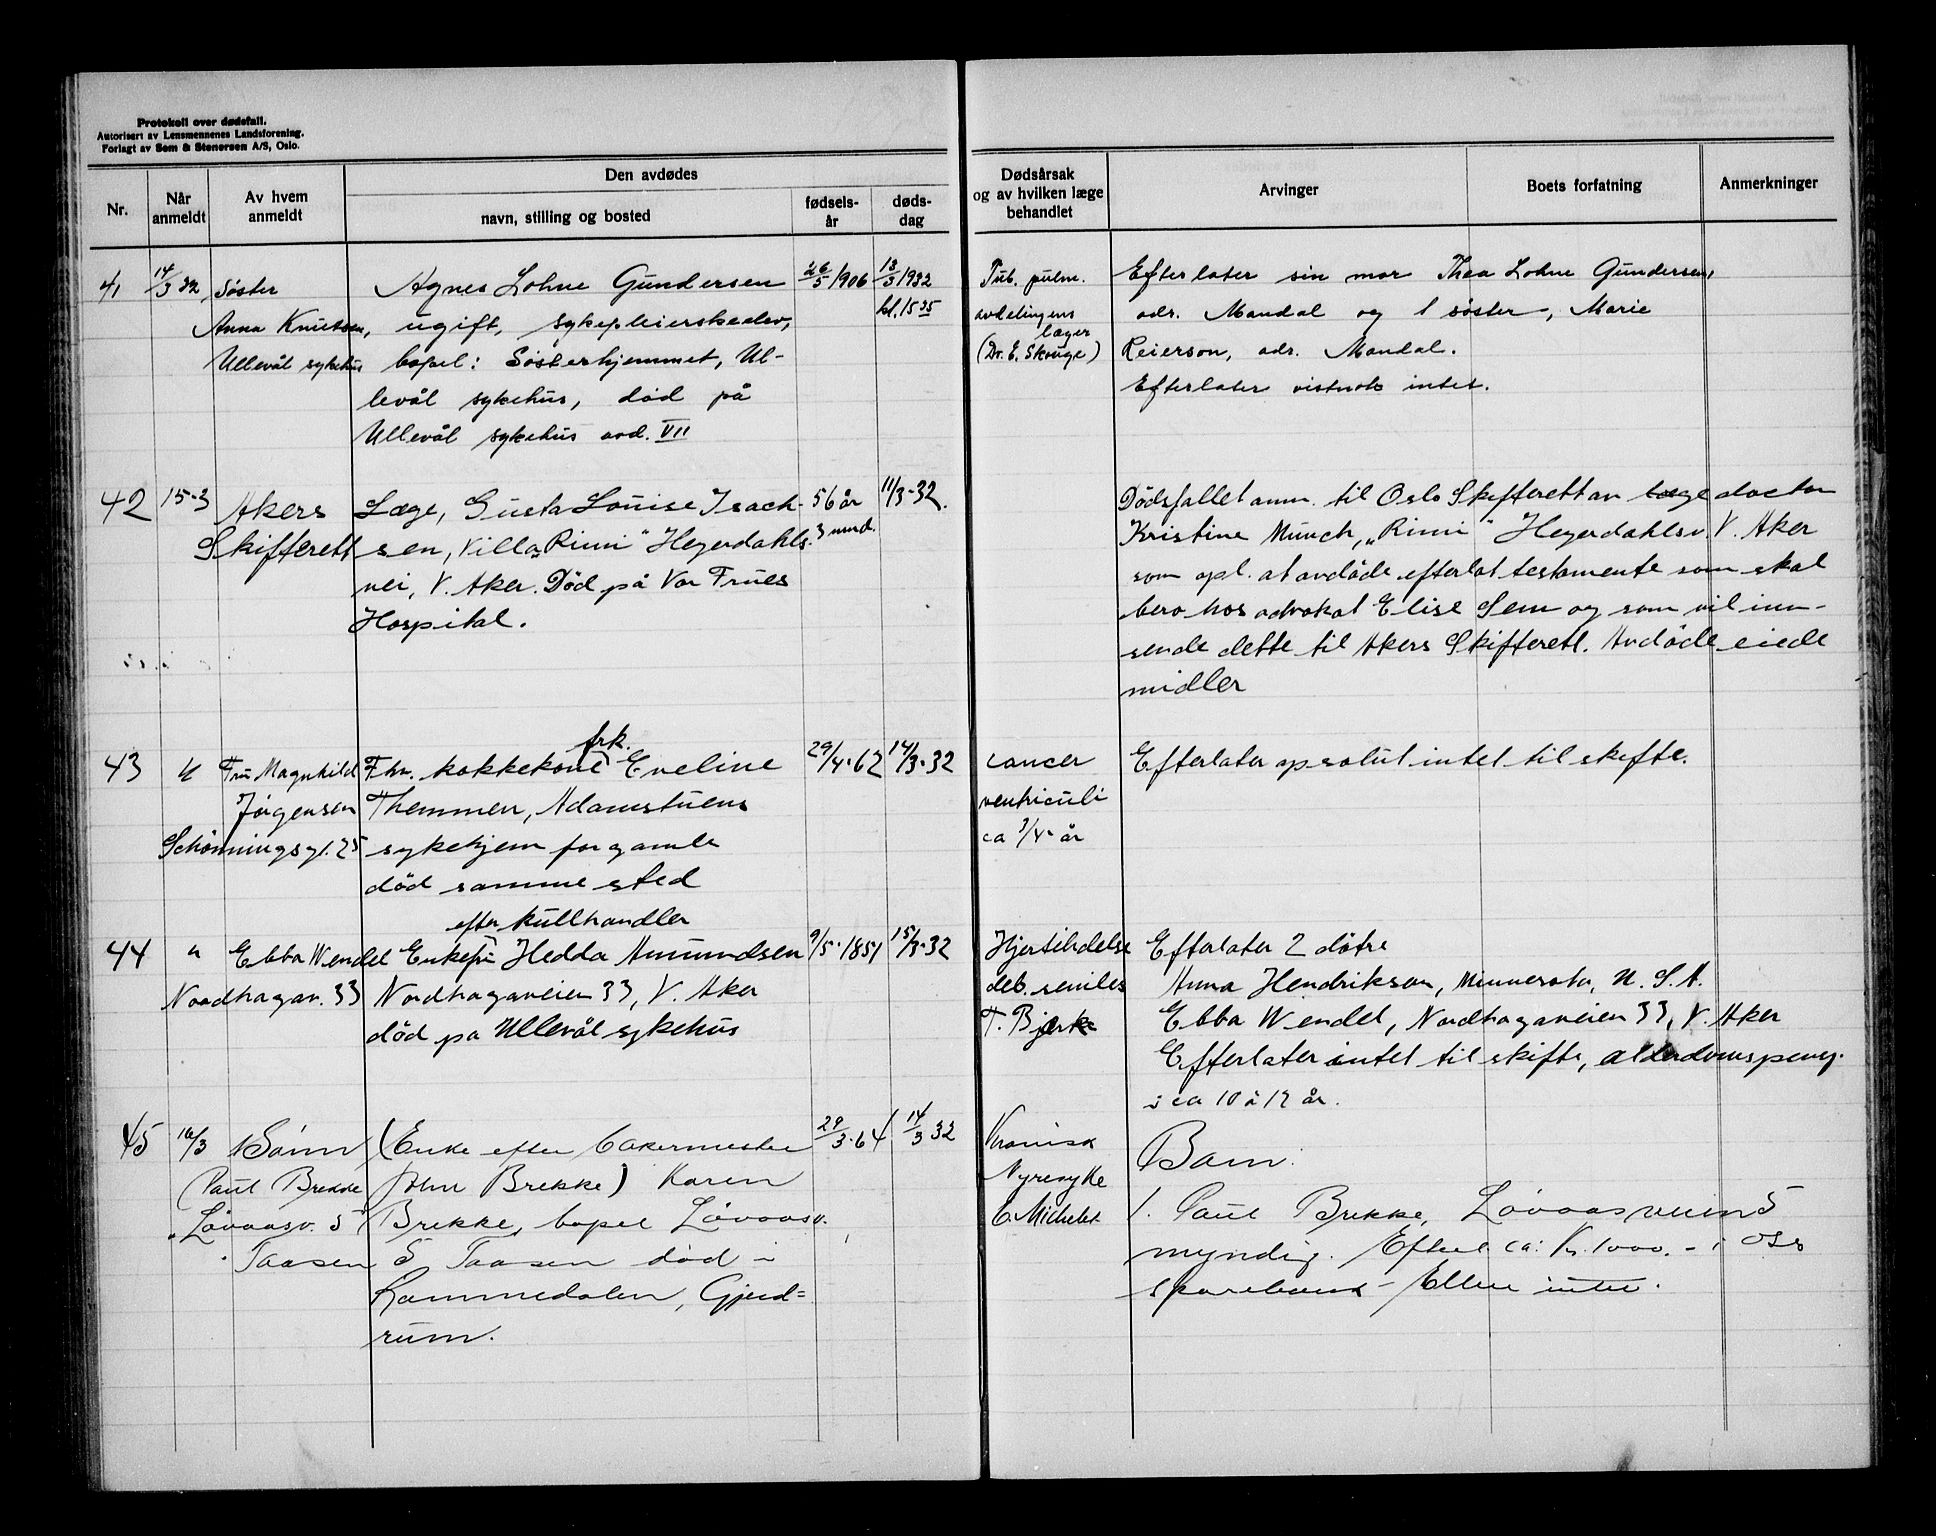 Protokoll over dødsfall.
Autorisert av Lensmennenes Landsforening.
Forlagt av Sem & Stenersen A/S, Oslo.
Nr.
Når anmeldt
Av hvem anmeldt
Den avdødes
navn, stilling og bosted
fødsels-år
døds-dag
Dødsårsak og av hvilken læge behandlet
Arvinger
Boets forfatning
Anmerkninger
41
14/3 32
Søster
Anna Knutsen,
Ullevål sykehus
Agnes Lohne Gundersen
ugift, sykepleierskeelev,
bopel: Søsterhjemmet, Ul-
levål sykehus, død på
Ullevål sykehus avd. VII
26/5 1906
13/3 1932
kl. 15 35
Tub. pulm.
avdelingens
læger
(Dr. E. Skouge)
Efterlater sin mor Thea Lohne Gundersen,
adr. Mandal og 1 søster, Marie
Reierson, adr. Mandal.
Efterlater vistnok intet.
42
15-3
Akers
Skifterett
Læge, Gusta Louise Isach-
sen, Villa „Rimi" Heyerdahls
vei, V. Aker. Død på Vor Frues
Hospital.
56 år
3 mnd.
11/3-32.
Dødsfallet anm. til Oslo Skifterett av læge doctor
Kristine Munch, „Rimi" Heyerdahlsv. V. Aker
som opl. at avdøde efterlot testamente som skal
bero hos advokat Elise Sem og som vil inn-
sende dette til Akers Skifterett. Avdøde eiede
midler
43
"
Fru Magnhild
Jørgensen
Schønningsgt. 25
frk.
Fhv. kokkekone Eveline
Themmen, Adamstuens
sykehjem for gamle
død samme sted
29/4-62
14/3-32
cancer
ventriculi
ca 3/4 år
Efterlater apsolut intet til skifte.
44
"
Ebba Wendel
Nordhagav. 33
efter kullhandler
Enkefru Hedda Amundsen
Nordhagaveien 33, V. Aker
død på Ullevål sykehus
9/5-1851
15/3-32
Hjertelidelse
deb. seniles
T. Bjerke
Efterlater 2 døtre
Anna Hendrikson, Minnesota, U. S. A.
Ebba Wendel, Nordhagaveien 33, V. Aker
Efterlater intet til skifte, alderdomspeng.
i ca 10 à 12 år.
45
16/3
Sønn
(Paul Brekke
Løvaasv. 5
Taasen
(Enke efter bakermester
John Brekke) Karen
Brekke, bopel Løvaasv.
5 Taasen død i
Lammedalen, Gjerd=
rum.
29/3-64
14/3 32
Kronisk
Nyresyke
C. Michelet
Barn:
1. Paul Brekke, Løvaasveien 5
myndig. Efterl. ca: Kr. 1000.- i Oslo
sparebank - Ellers intet.